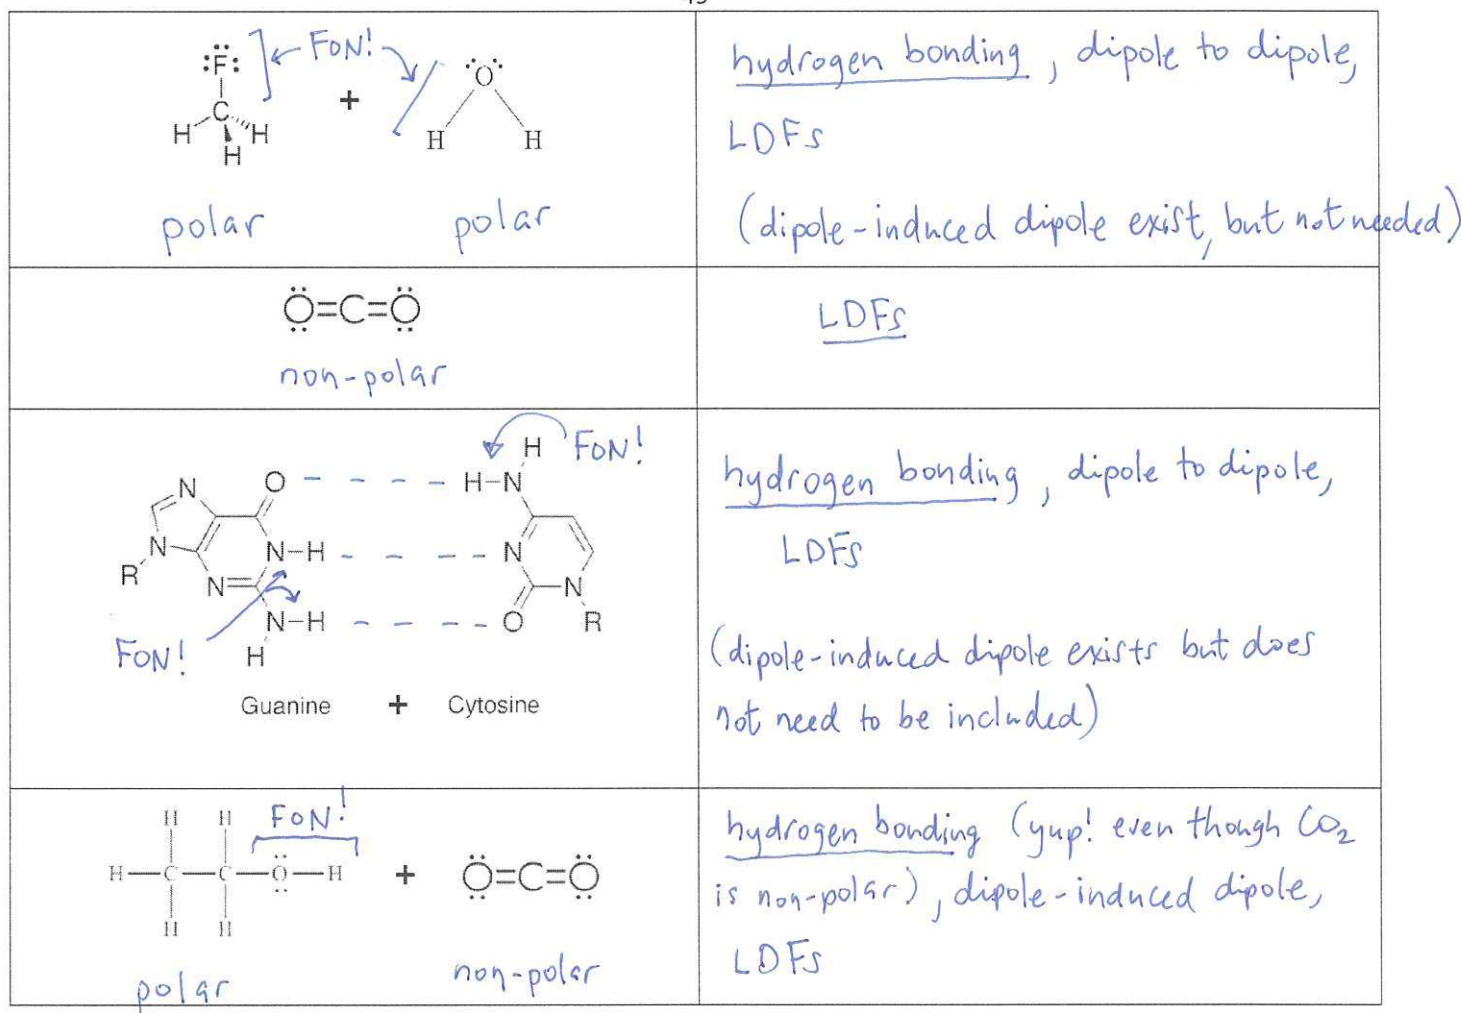 :F: FON! O
C + H H
H H
H
polar polar
hydrogen bonding, dipole to dipole,
LDFs
(dipole-induced dipole exist, but not needed)
O=C=O
non-polar
LDFs
H FON!
N O H-N
N N-H N
R N N
N-H O R
FON! H
Guanine + Cytosine
hydrogen bonding, dipole to dipole,
LDFs
(dipole-induced dipole exists but does
not need to be included)
H H FON!
H-C-C-O-H + O=C=O
H H
polar non-polar
hydrogen bonding (yup! even though CO₂
is non-polar), dipole-induced dipole,
LDFs